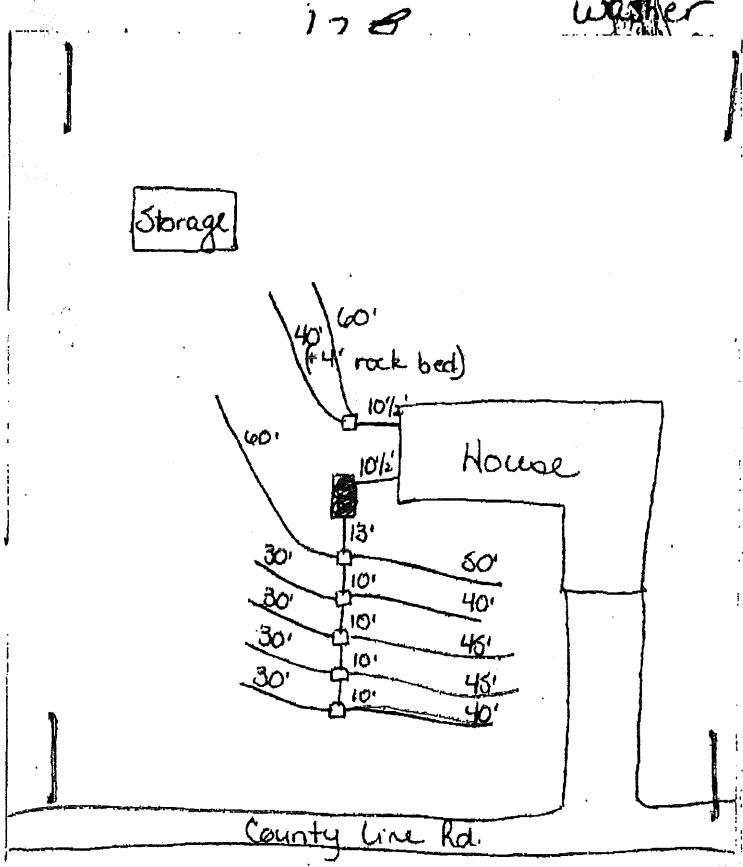 Washer
Storage
60'
40'
(+4' rock bed)
10½'
60'
10½'
House
13'
30'
50'
10'
30'
40'
10'
30'
45'
10'
30'
45'
10'
40'
County Line Rd.